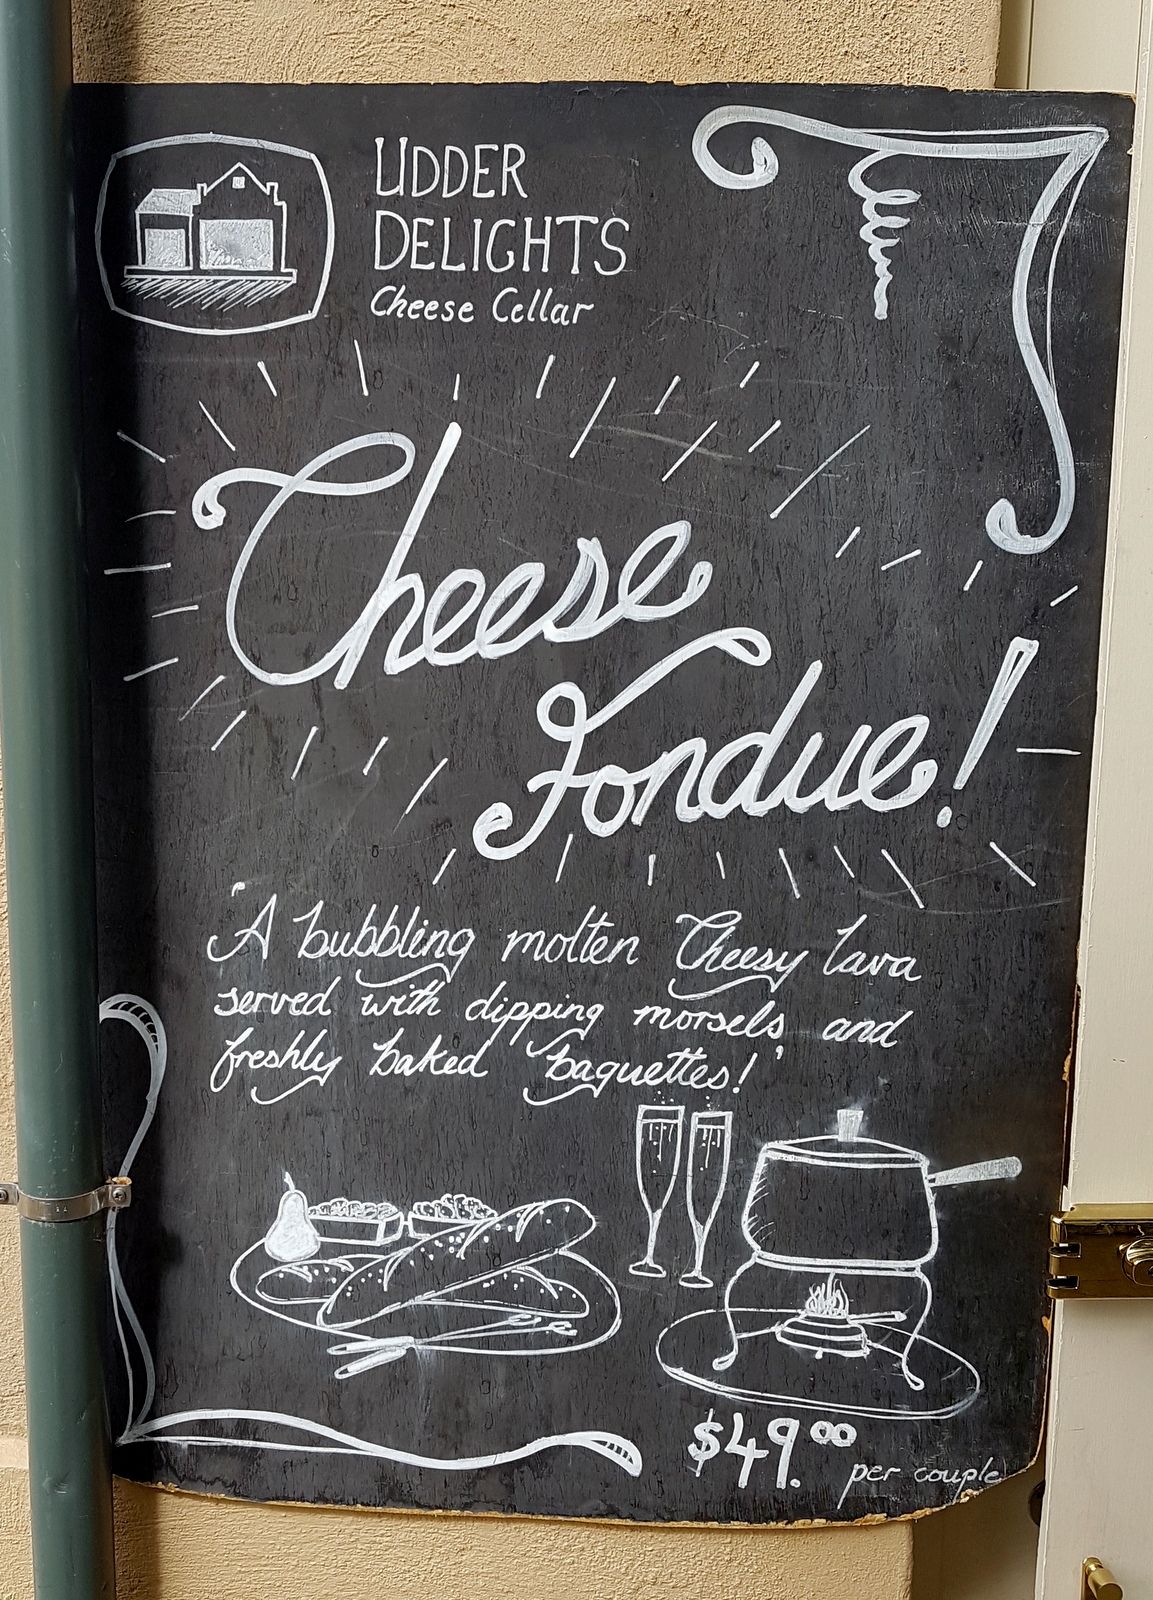 UDDER
DELIGHTS
Cheese Cellar
Cheese
Fondue!
"A bubbling molten Cheesy lava
served with dipping morsels and
freshly baked baguettes!"
$49.00
per couple